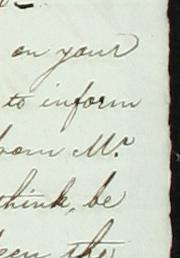 on your
to inform
from Mr.
think, be
the